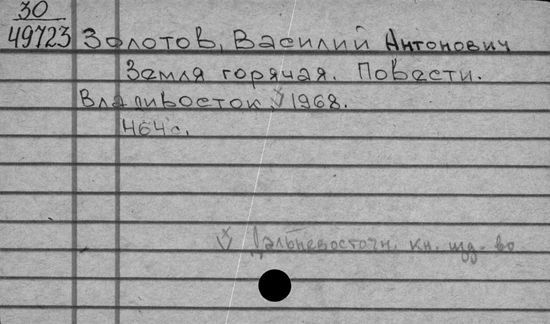 30
49723 Золотов, Василий Антонович
Земля горячая. Повести.
Владивосток, 1968.
464 с.
Дальневосточн. кн. изд-во